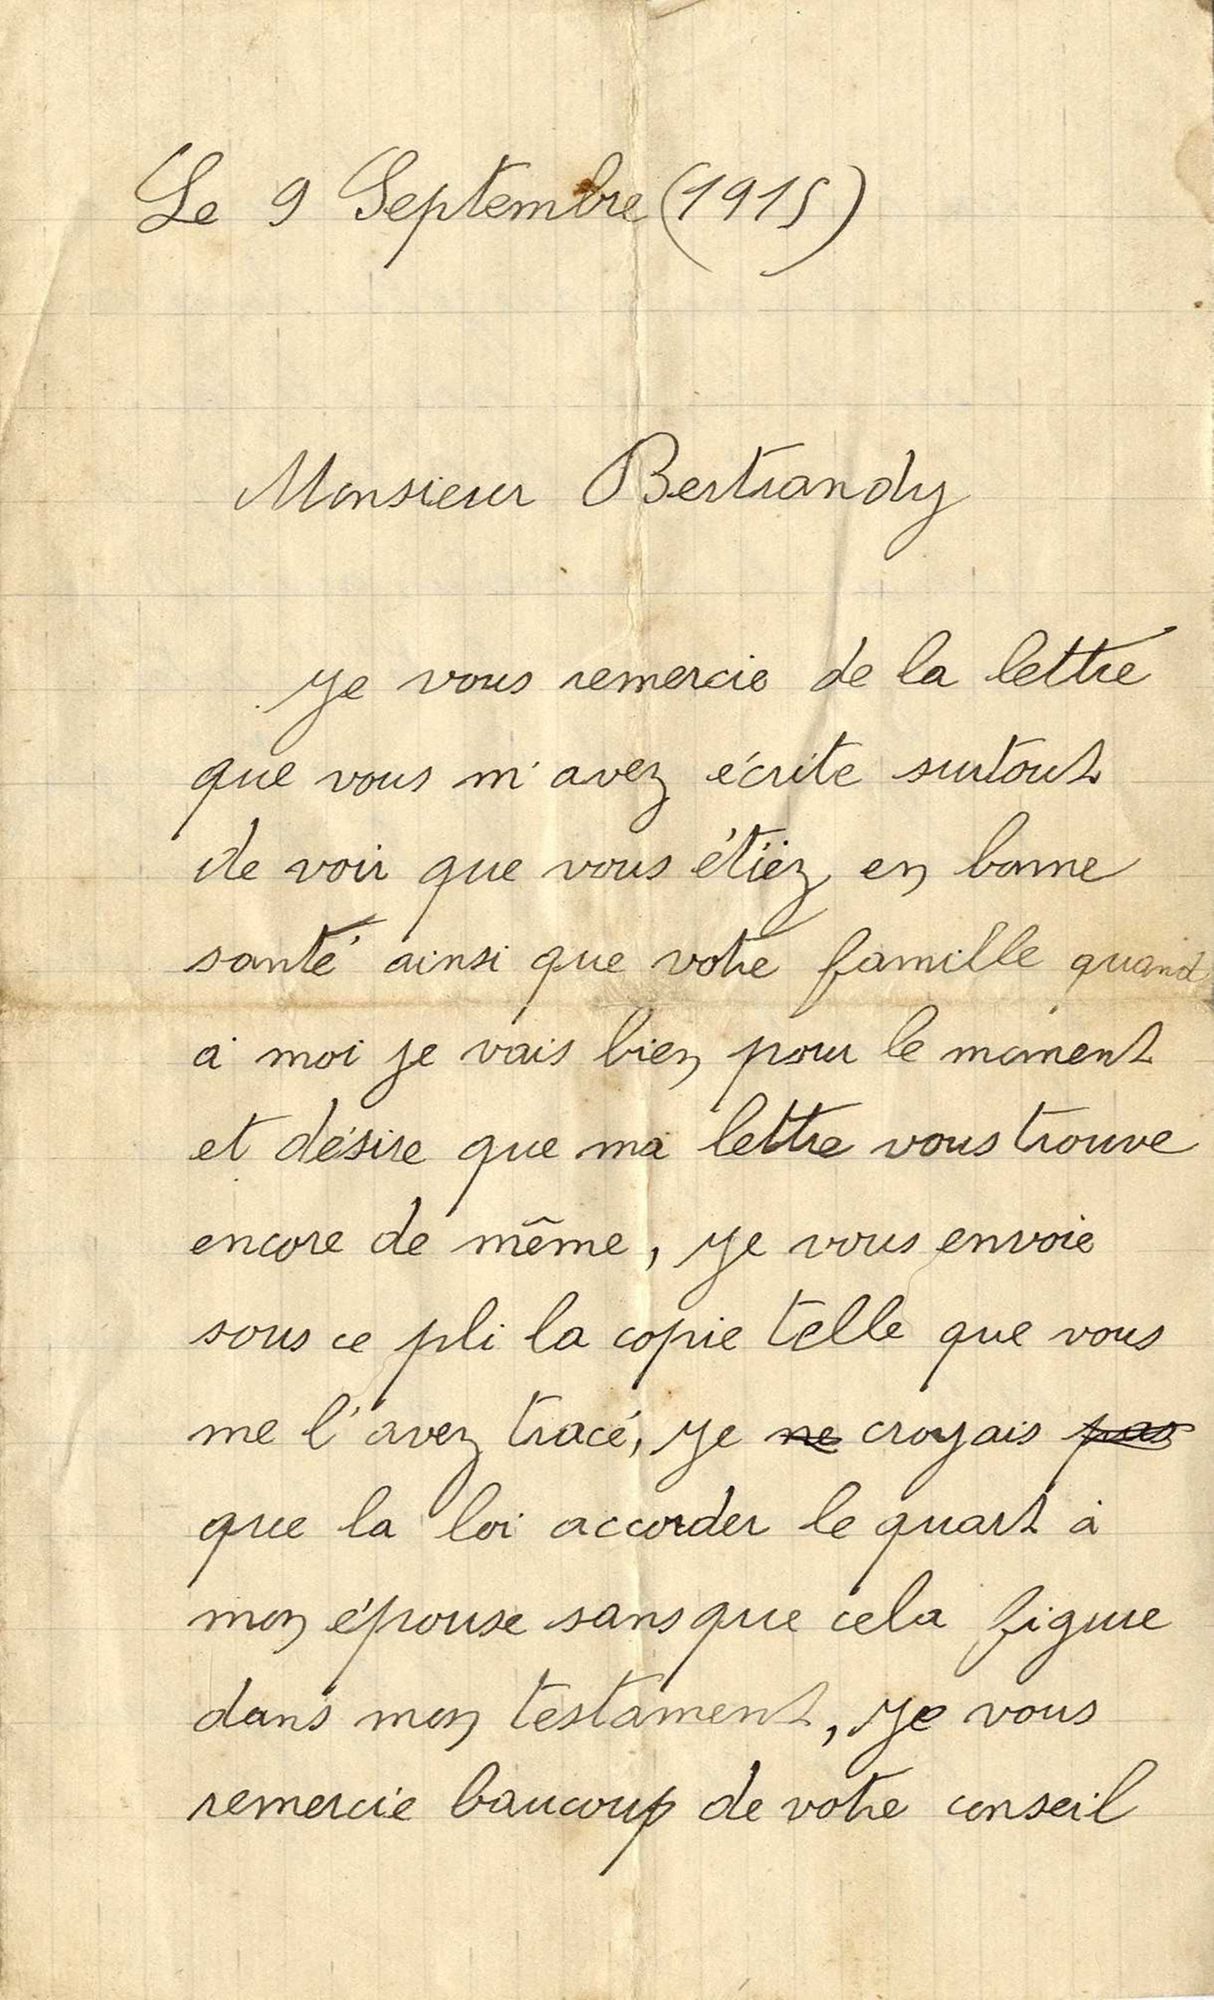 Le 9 Septembre (1915)
Monsieur Bertrandy
Je vous remercie de la lettre
que vous m'avez écrite surtout
de voir que vous étiez en bonne
santé ainsi que votre famille quand
à moi je vais bien pour le moment
et désire que ma lettre vous trouve
encore de même, Je vous envoie
sous ce pli la copie telle que vous
me l'avez tracé, Je ne croyais pas
que la loi accorder le quart à
mon épouse sans que cela figure
dans mon testament, Je vous
remercie baucoup de votre conseil